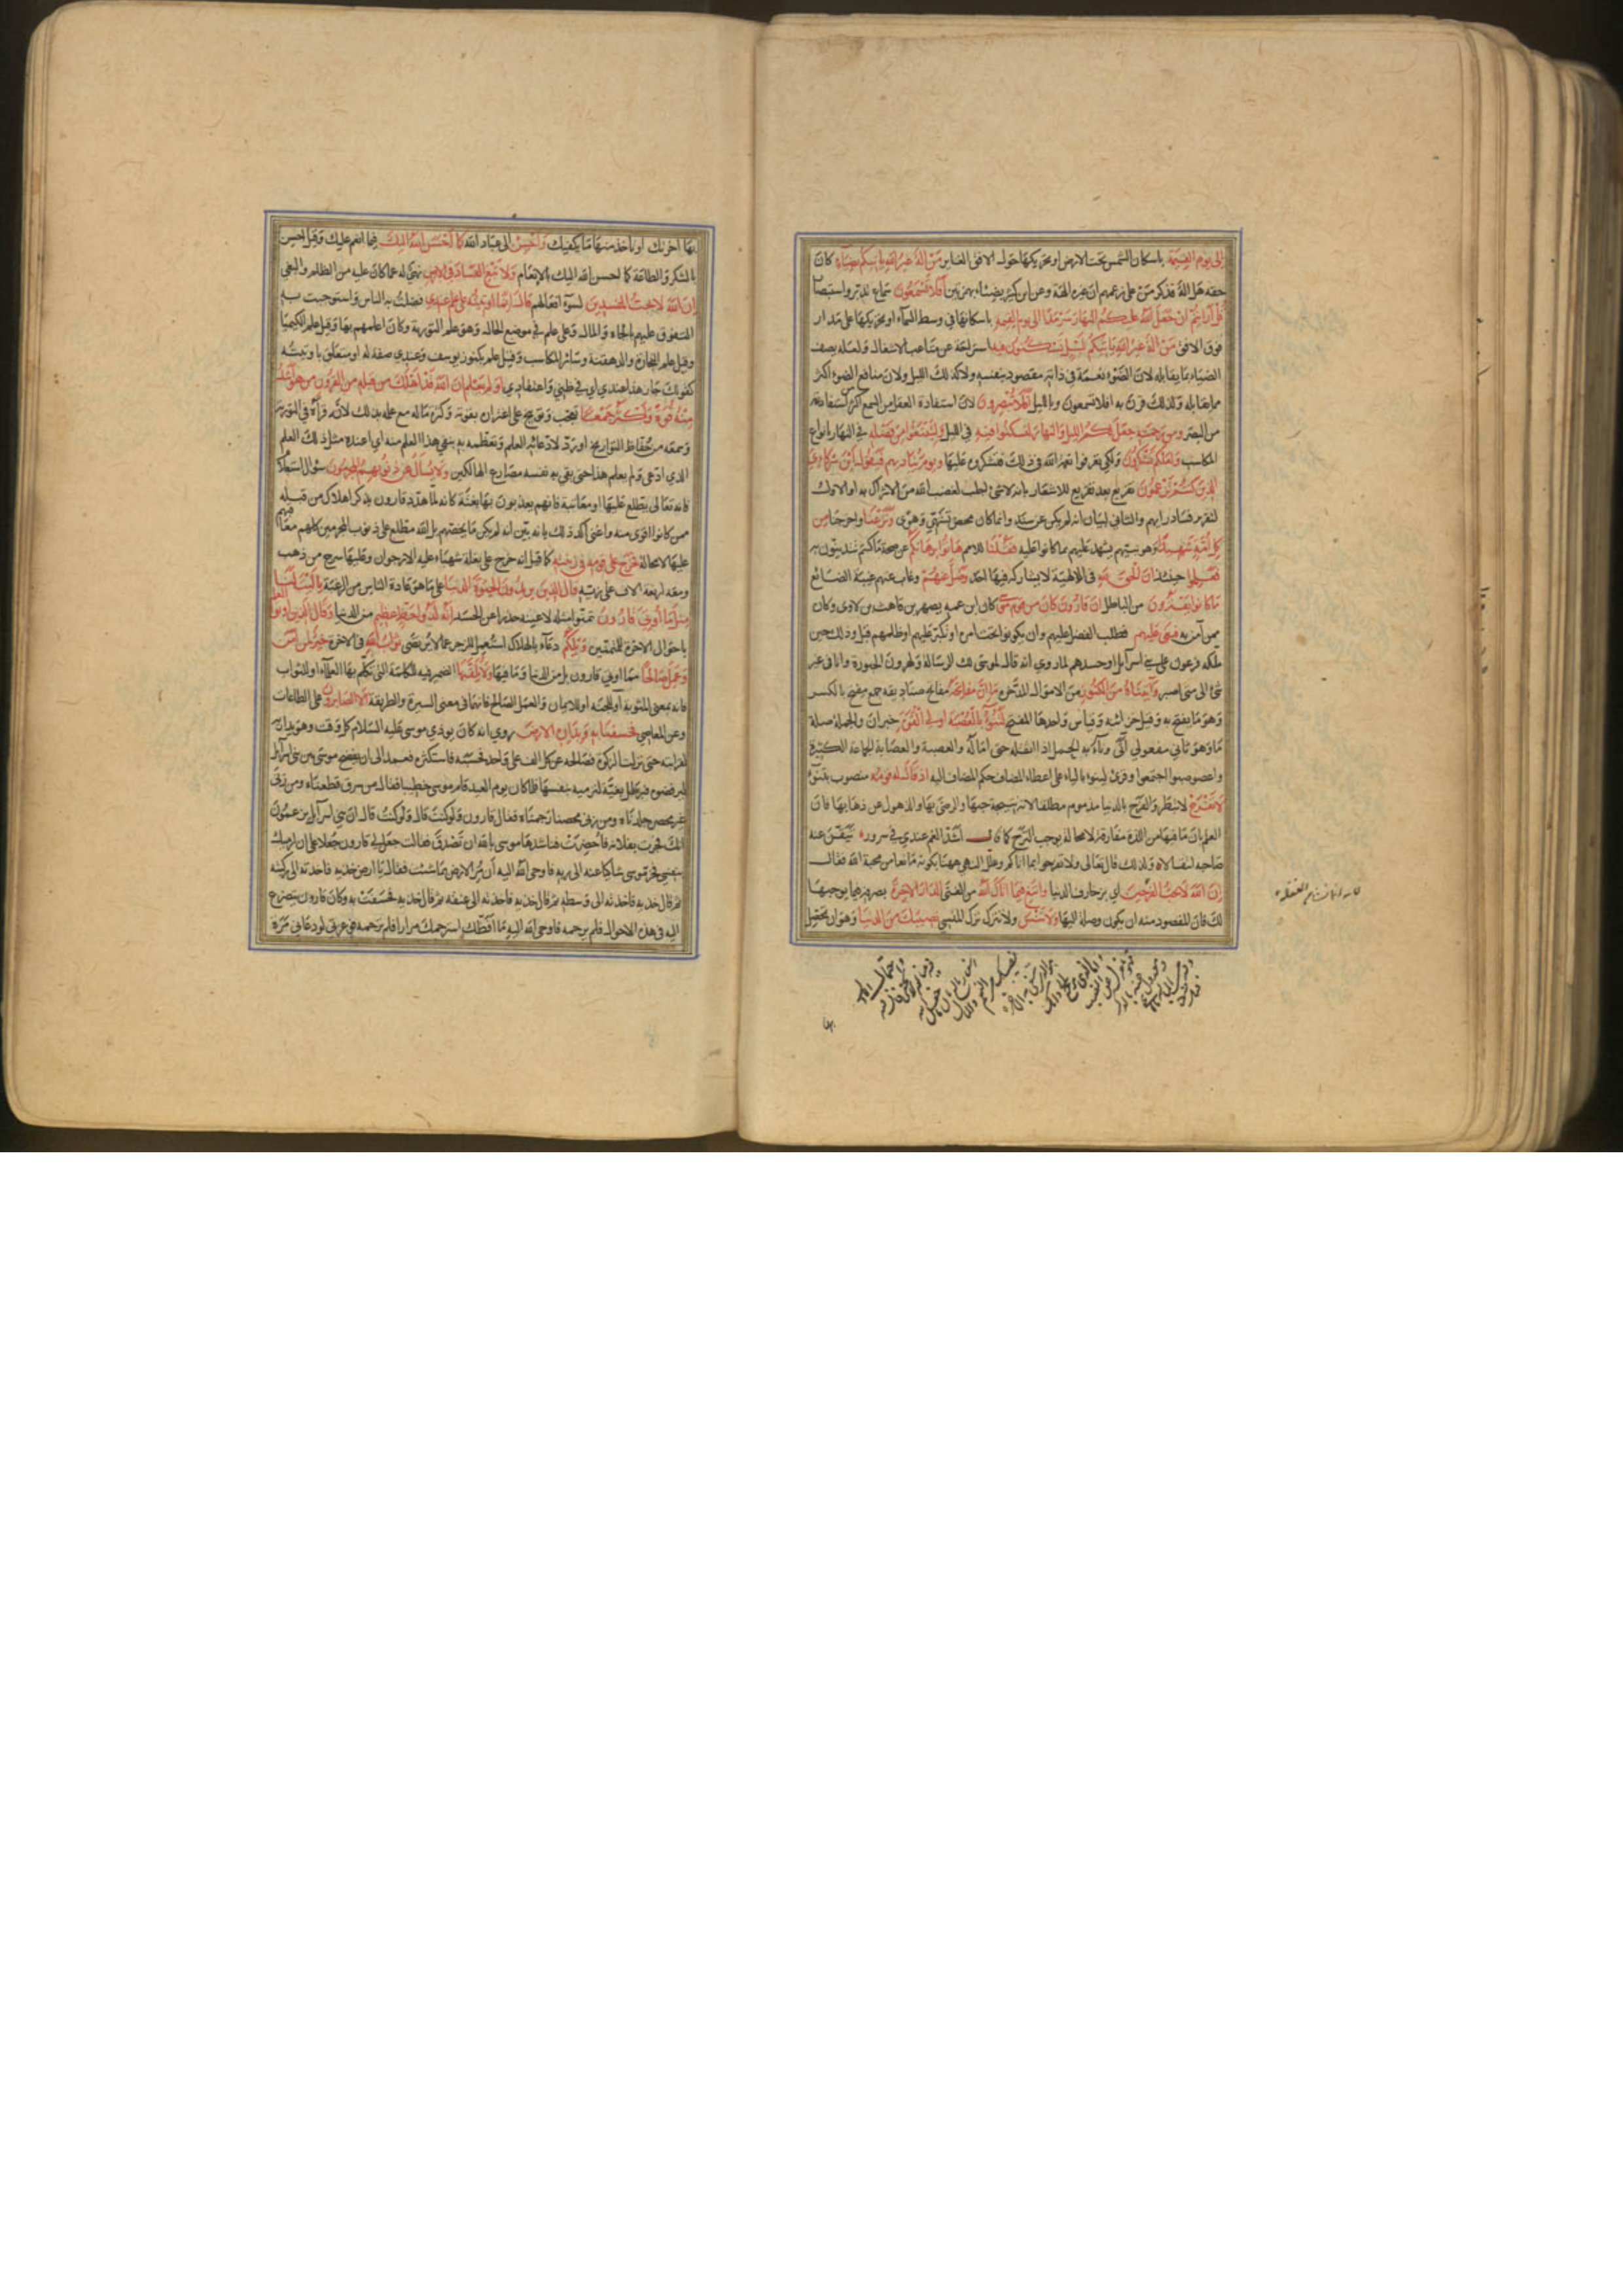 الى يوم القيمة باسكان الشمس تحت الارض او تحريكها حول الافق الغاير من اله غير الله ياتيكم بضياء كان
حقه هل اله فذكر من على زعمهم ان غيره الهة وعن ابن كثير بضئاء بهمزتين افلا تسمعون سماع تدبر واستبصار
قل ارايتم ان جعل الله عليكم النهار سرمدا الى يوم القيمة باسكانها في وسط السماء او تحريكها على مدار
فوق الافق من اله غير الله ياتيكم بليل تسكنون فيه استراحة عن متاعب الاشغال ولعله لم يصف
الضياء بما يقابله لان الضوء نعمة في ذاته مقصود بنفسه ولا كذلك الليل ولان منافع الضوء اكثر
مما يقابله ولذلك قرن به افلا تسمعون وبالليل افلا تبصرون لان استفادة العقل من السمع اكثر من استفادته
من البصر ومن رحمته جعل لكم الليل والنهار لتسكنوا فيه في الليل ولتبتغوا من فضله في النهار بانواع
المكاسب ولعلكم تشكرون ولكي تعرفوا نعمة الله في ذلك فتشكروه عليها ويوم يناديهم فيقول اين شركاءي
الذين كنتم تزعمون تقريع بعد تقريع للاشعار بانه لا شئ اجلب لغضب الله من الاشراك به او الاول
لتقرير فساد رايهم والثاني لبيان انه لم يكن عن سند وانما كان محض تشهي وهوى ونزعنا واخرجنا من
كل امة شهيدا وهو نبيهم يشهد عليهم بما كانوا عليه فقلنا للامم هاتوا برهانكم على صحة ما كنتم تدينون به
فعلموا حينئذ ان الحق لله في الالهية لا يشاركه فيها احد وضل عنهم وغاب عنهم غيبة الضائع
ما كانوا يفترون من الباطل ان قارون كان من قوم موسى كان ابن عمه يصهر بن قاهث بن لاوى وكان
ممن آمن به فبغى عليهم فطلب الفضل عليهم وان يكونوا تحت امره او تكبر عليهم او ظلمهم قيل وذلك حين
ملكه فرعون على بني اسرآيل او حسدهم لما روي انه قال لموسى لك الرسالة ولهرون الحبورة وانا في غير
شئ الى متى اصبر وآتيناه من الكنوز من الاموال المدخرة ما ان مفاتحه مفاتح صناديقه جمع مفتح بالكسر
وهو ما يفتح به وقيل خزائنه وقياس واحدها المفتح لتنوء بالعصبة اولي القوة خبر ان والجملة صلة
ما وهو ثاني مفعولي آتى وناء به الحمل اذا اثقله حتى اماله والعصبة والعصابة الجماعة الكثيرة
واعصوصبوا اجتمعوا وقرئ لينوء بالياء على اعطاء المضاف حكم المضاف اليه اذ قال له قومه منصوب بتنوء
لا تفرح لا تبطر والفرح بالدنيا مذموم مطلقا لانه نتيجة حبها والرضى بها والذهول عن ذهابها فان
العلم بان ما فيها من اللذة مفارقة لا محالة يوجب الترح كما قال اشد الغم عندي في سرور تيقن عنه
صاحبه انتقالا ولذلك قال تعالى ولا تفرحوا بما آتاكم وعلل النهي ههنا بكونه مانعا من محبة الله فقال
ان الله لا يحب الفرحين اي بزخارف الدنيا وابتغ فيما آتاك الله من الغنى الدار الاخرة بصرفه فيما يوجبها
لك فان المقصود منه ان يكون وصلة اليها ولا تنس ولا تترك ترك المنسي نصيبك من الدنيا وهو ان تحصل
بها آخرتك او تاخذ منها ما يكفيك واحسن الى عباد الله كما احسن الله اليك فيما انعم عليك وقيل احسن
بالشكر والطاعة كما احسن الله اليك بالانعام ولا تبغ الفساد في الارض نهي له عما كان عليه من الظلم والبغي
ان الله لا يحب المفسدين لسوء افعالهم قال انما اوتيته على علم عندي فضلت به الناس واستوجبت به
التفوق عليهم بالجاه والمال وعلى علم في موضع الحال وهو علم التورية وكان اعلمهم بها وقيل علم الكيميا
وقيل علم التجارة والدهقنة وسائر المكاسب وقيل علم بكنوز يوسف وعندي صفة له او متعلق باوتيته
كقولك جاز هذا عندي اي في ظني واعتقادي اولم يعلم ان الله قد اهلك من قبله من القرون من هو اشد
منه قوة واكثر جمعا تعجب وتوبيخ على اغتراره بقوته وكثرة ماله مع علمه بذلك لانه قرأه في التورية
وسمعه من حفاظ التواريخ او رد لادعائه العلم وتعظمه به بنفي هذا العلم منه اي اعنده مثل ذلك العلم
الذي ادعى ولم يعلم هذا حتى يقي به نفسه مصارع الهالكين ولا يسأل عن ذنوبهم المجرمون سؤال استعلام
فانه تعالى مطلع عليها او معاتبة فانهم يعذبون بها بغتة كانه لما هدد قارون بذكر اهلاك من قبله
ممن كانوا اقوى منه واغنى اكد ذلك بانه بين انه لم يكن ما يخصهم بل الله مطلع على ذنوب المجرمين كلهم معاقبهم
عليها لا محالة فخرج على قومه في زينته كما قيل انه خرج على بغلة شهباء عليه الارجوان وعليها سرج من ذهب
ومعه اربعة الاف على زيه قال الذين يريدون الحيوة الدنيا على ما هو عادة الناس من الرغبة يا ليت لنا
مثل ما اوتي قارون تمنوا مثله لا عينه حذرا عن الحسد انه لذو حظ عظيم من الدنيا وقال الذين اوتوا العلم
باحوال الاخرة للمتمنين ويلكم دعاء بالهلاك استعمل للزجر عما لا يرتضى ثواب الله في الاخرة خير لمن آمن
وعمل صالحا مما اوتي قارون بل من الدنيا وما فيها ولا يلقيها الضمير فيه للكلمة التي تكلم بها العلماء او للثواب
فانه بمعنى المثوبة او للجنة او للايمان والعمل الصالح فانهما في معنى السيرة والطريقة الا الصابرون على الطاعات
وعن المعاصي فخسفنا به وبداره الارض روي انه كان يوذي موسى عليه السلام كل وقت وهو يداريه
لقرابته حتى نزلت الزكوة فصالحه عن كل الف على واحد فحسبه فاستكثره فعمد الى ان يفضح موسى بين بني اسرآيل
ليرفضوه فبرطل بغية لترميه بنفسها فلما كان يوم العيد قام موسى خطيبا فقال من سرق قطعناه ومن زنى
غير محصن جلدناه ومن زنى محصنا رجمناه فقال قارون ولو كنت قال ولو كنت قال ان بني اسرآيل يزعمون
انك فجرت بفلانة فاحضرت فناشدها موسى بالله ان تصدق فقالت جعل لي قارون جعلا على ان ارميك
بنفسي فخر موسى شاكيا عنه الى ربه فاوحى الله اليه ان مر الارض بما شئت فقال يا ارض خذيه فاخذته الى ركبته
ثم قال خذيه فاخذته الى وسطه ثم قال خذيه فاخذته الى عنقه ثم قال خذيه فخسفت به وكان قارون يتضرع
اليه في هذه الاحوال فلم يرحمه فاوحى الله اليه ما افظك استرحمك مرارا فلم ترحمه فوعزتي لو دعاني مرة